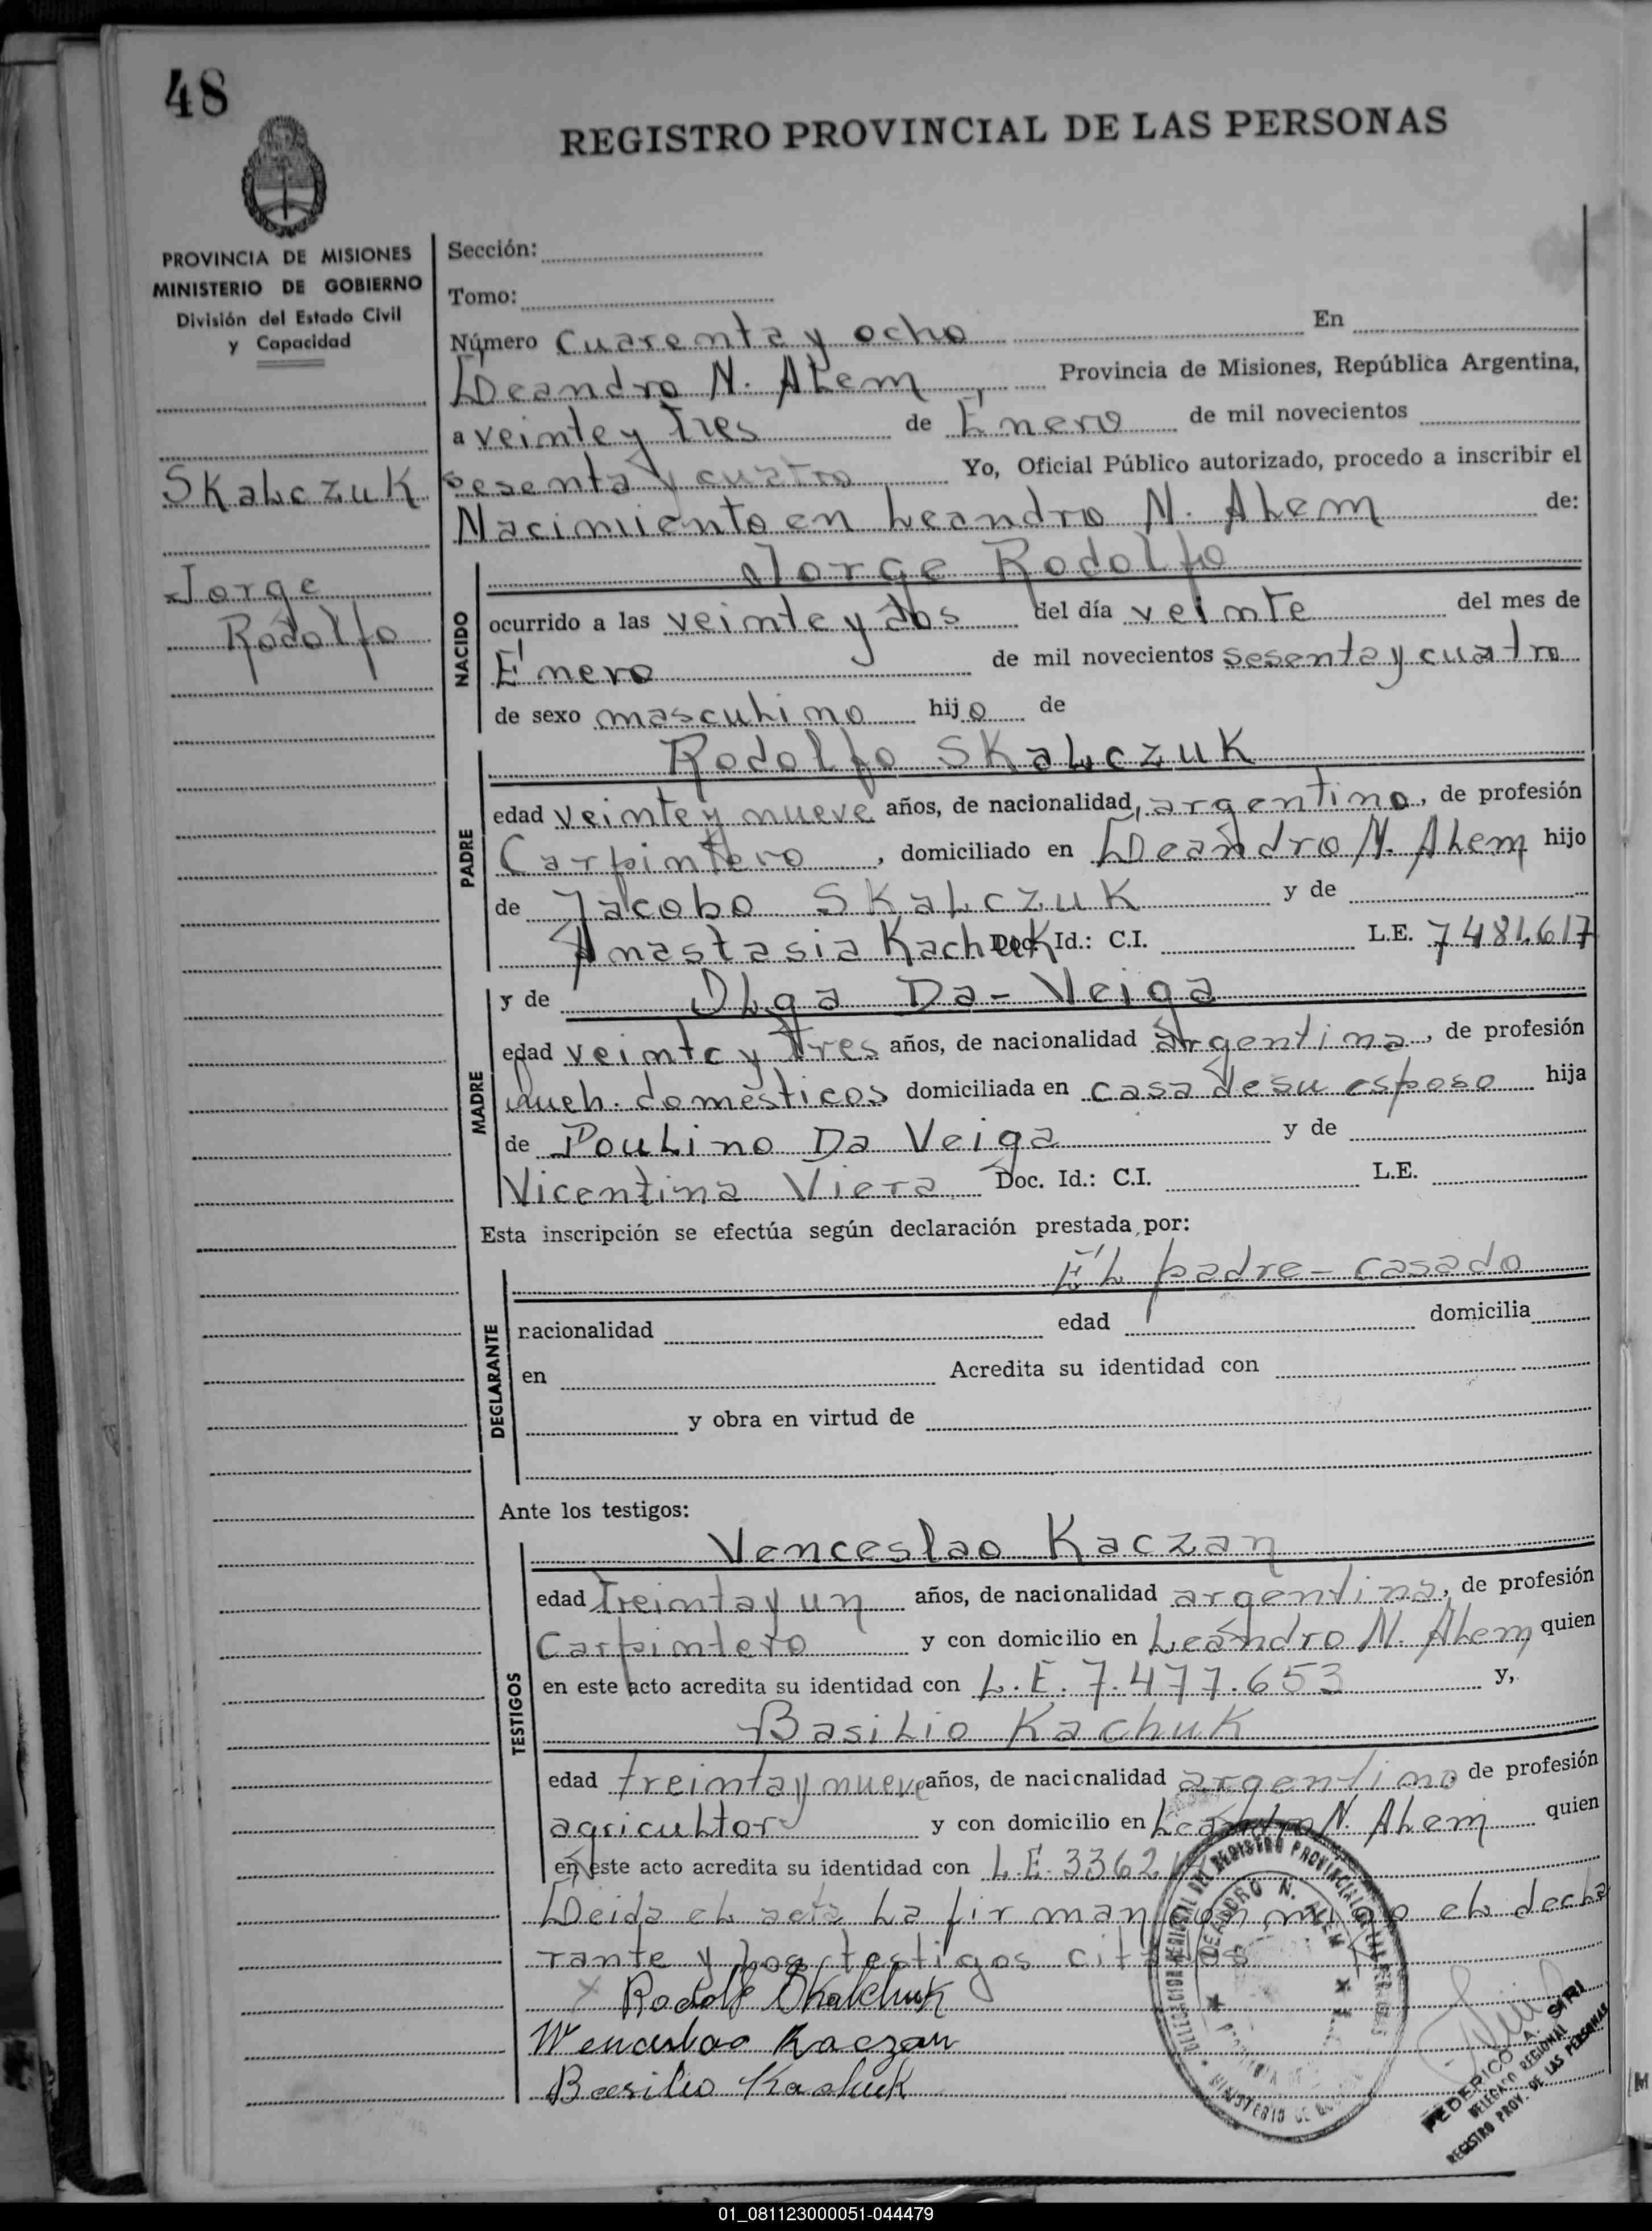 48
REGISTRO PROVINCIAL DE LAS PERSONAS
PROVINCIA DE MISIONES
MINISTERIO DE GOBIERNO
División del Estado Civil
y Capacidad
Skalczuk
Jorge
Rodolfo
Sección:
Tomo:
Número Cuarenta y ocho En
Leandro N. Alem, Provincia de Misiones, República Argentina,
a veinte y tres de Enero de mil novecientos
sesenta y cuatro Yo, Oficial Público autorizado, procedo a inscribir el
Nacimiento en Leandro N. Alem de:
NACIDO
Jorge Rodolfo
ocurrido a las veinte y dos del día veinte del mes de
Enero de mil novecientos sesenta y cuatro
de sexo masculino hijo de
PADRE
Rodolfo Skalczuk
edad veinte y nueve años, de nacionalidad, argentino, de profesión
Carpintero, domiciliado en Leandro N. Alem hijo
de Jacobo Skalczuk y de
Anastasia Kachuk Doc. Id.: C.I. L.E. 7481617
MADRE
y de Olga Da-Veiga
edad veinte y tres años, de nacionalidad argentina, de profesión
queh. domésticos domiciliada en casa de su esposo hija
de Poulino Da Veiga y de
Vicentina Viera Doc. Id.: C.I. L.E.
Esta inscripción se efectúa según declaración prestada por:
DECLARANTE
El padre - casado
nacionalidad edad domicilia
en Acredita su identidad con
y obra en virtud de
Ante los testigos:
TESTIGOS
Venceslao Kaczan
edad treinta y un años, de nacionalidad argentina, de profesión
Carpintero y con domicilio en Leandro N. Alem quien
en este acto acredita su identidad con L.E. 7.477.653 y,
Basilio Kachuk
edad treinta y nueve años, de nacionalidad argentino de profesión
agricultor y con domicilio en Leandro N. Alem quien
en este acto acredita su identidad con L.E. 3362
Leida el acta la firman conmigo el decla
rante y los testigos citados
Rodolf Skalchuk
Wenceslao Kaczan
Basilio Kachuk
DELEGACION REGIONAL DEL REGISTRO PROVINCIAL DE LAS PERSONAS
LEANDRO N. ALEM
MINISTERIO DE
FEDERICO A. SIRI
DELEGADO REGIONAL
REGISTRO PROV. DE LAS PERSONAS
01_081123000051-044479